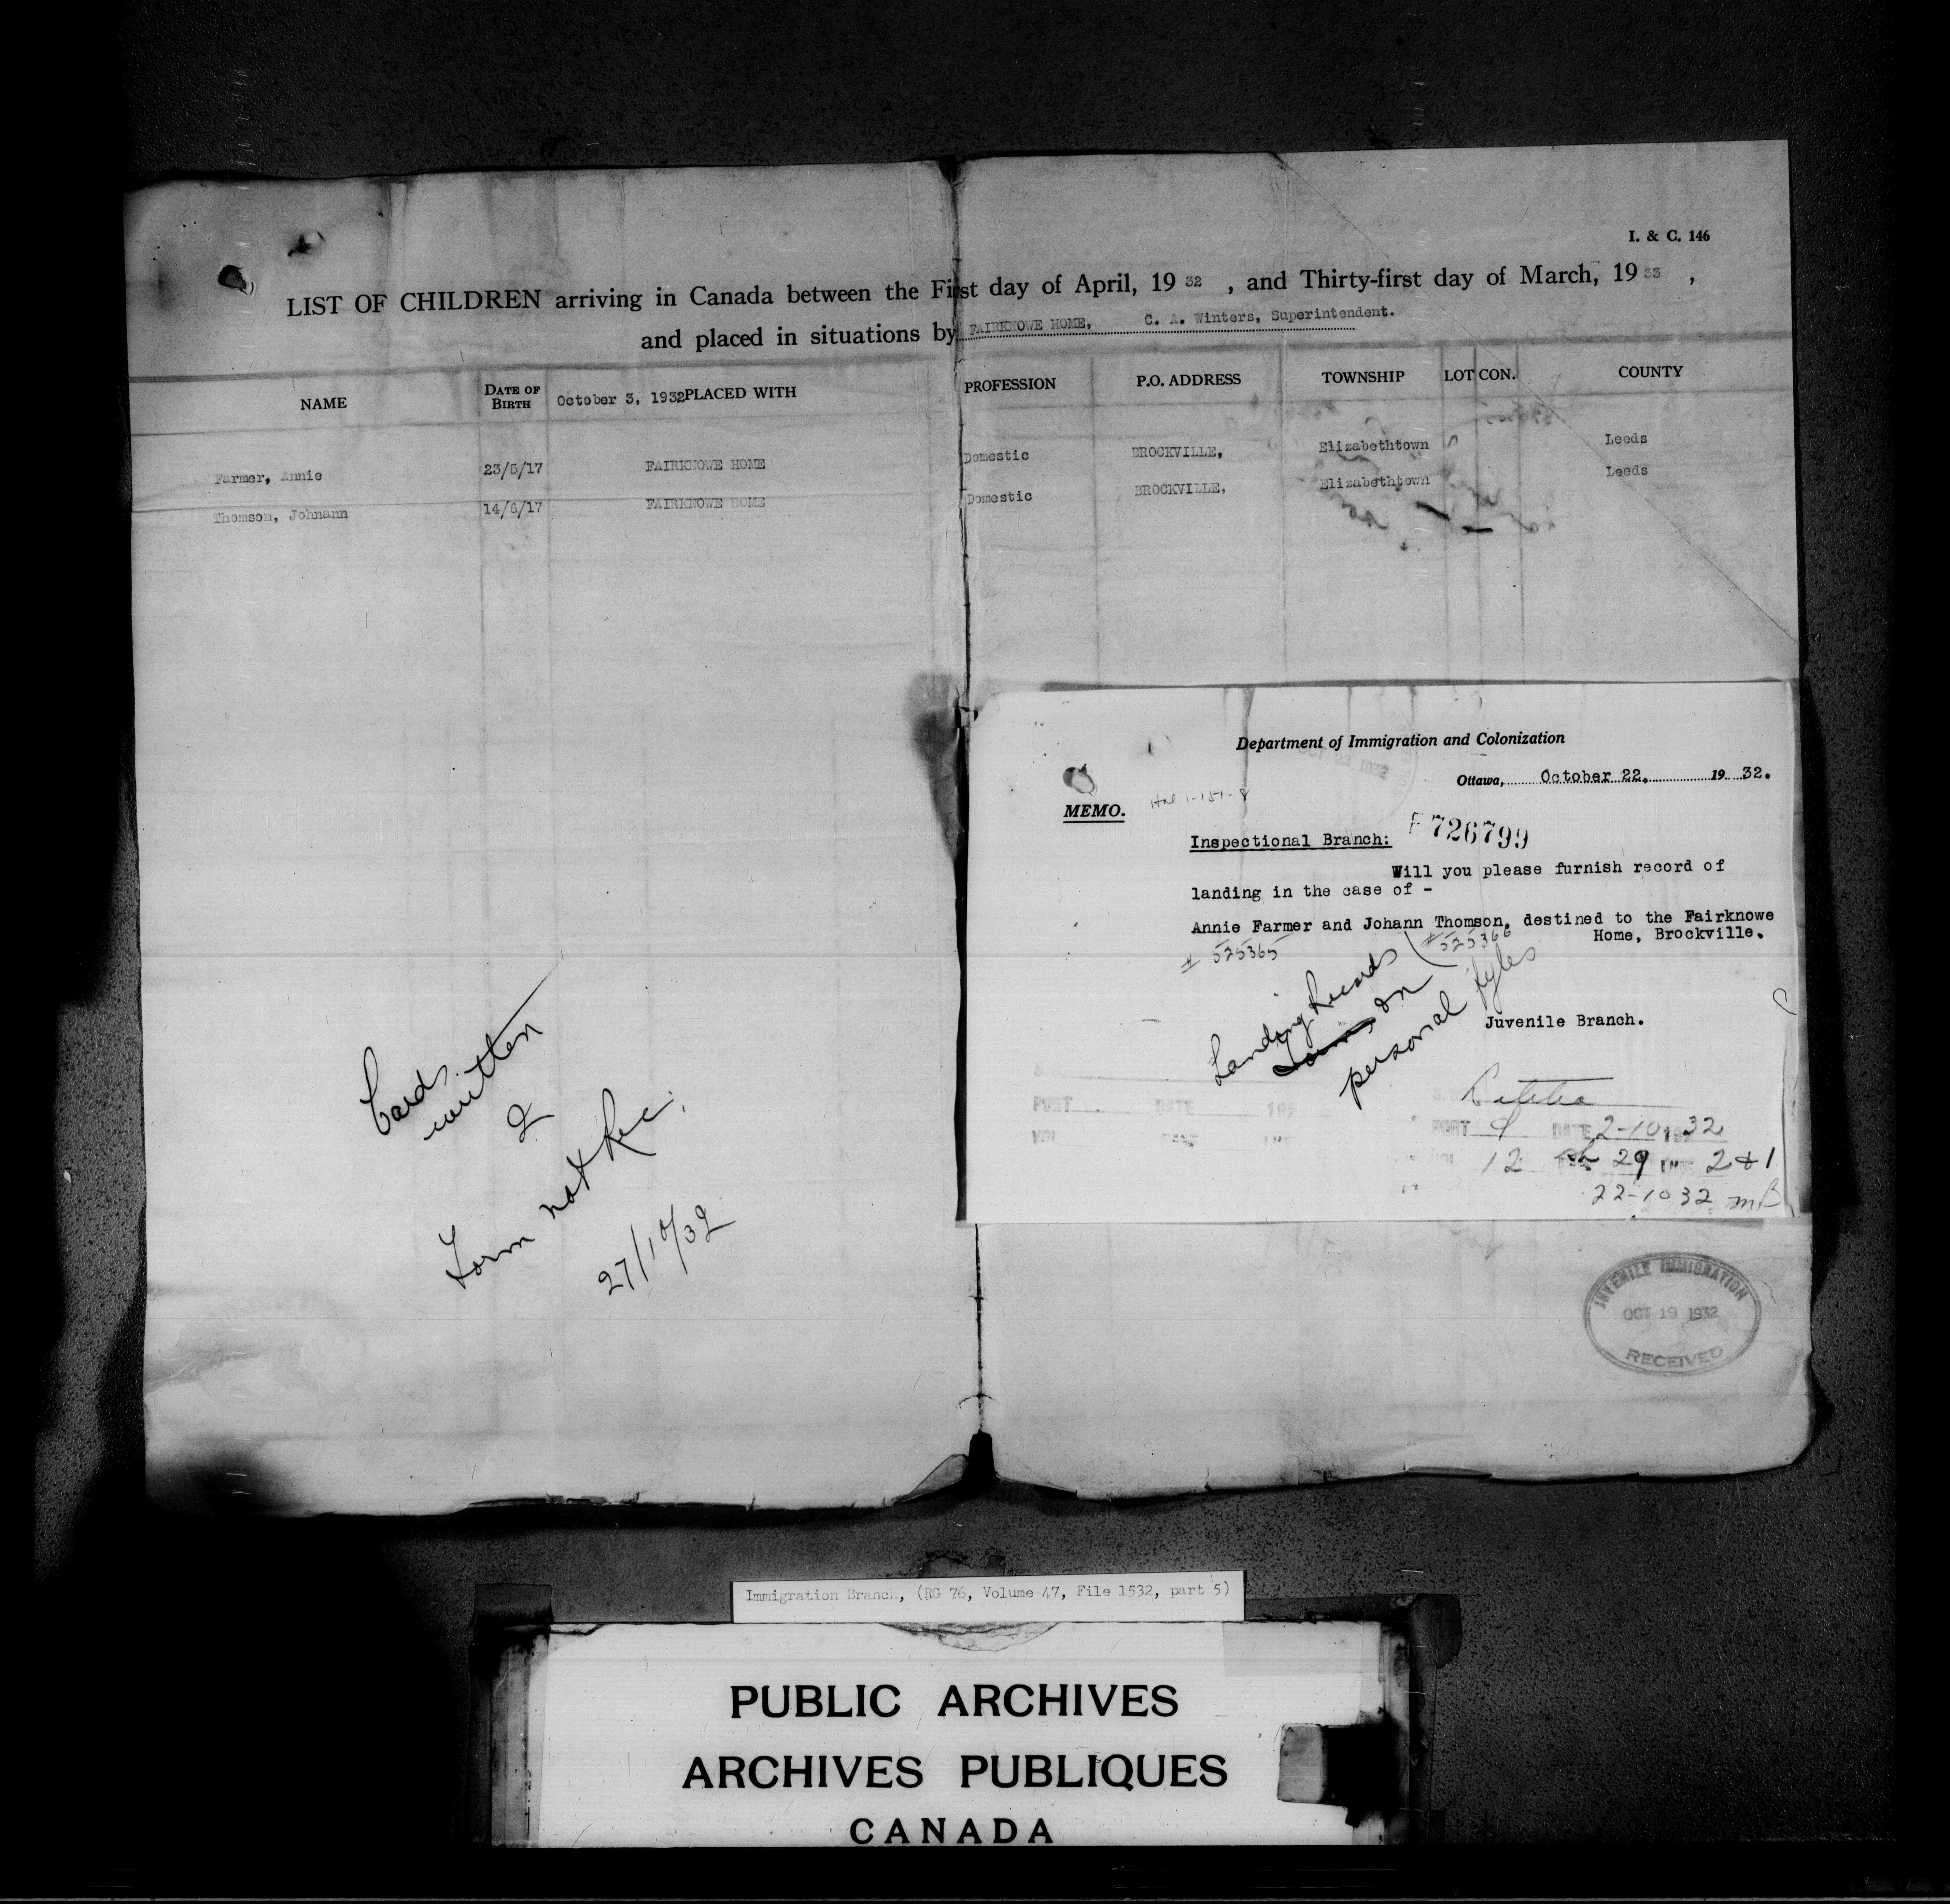 I. & C. 146
LIST OF CHILDREN arriving in Canada between the First day of April, 19 32 , and Thirty-first day of March, 19 33 ,
and placed in situations by FAIRKNOWE HOME, C. A. Winters, Superintendent.
NAME DATE OF BIRTH October 3, 1932 PLACED WITH PROFESSION P.O. ADDRESS TOWNSHIP LOT CON. COUNTY
Farmer, Annie 23/5/17 FAIRKNOWE HOME Domestic BROCKVILLE, Elizabethtown Leeds
Thomson, Johnann 14/6/17 FAIRKNOWE HOME Domestic BROCKVILLE, Elizabethtown Leeds
Cards
written
2
Form not Rec.
27/10/32
Department of Immigration and Colonization
OCT 22 1932
Ottawa, October 22, 19 32.
MEMO.
Inspectional Branch: F 726799
Will you please furnish record of
landing in the case of -
Annie Farmer and Johann Thomson, destined to the Fairknowe
Home, Brockville.
# 525365 # 525366
Landing Records
on
personal fyles
Juvenile Branch.
S.S.
PORT DATE 192
VOL PAGE LINE
PORT Q DATE 2-10 1932
VOL 12 29 LINE 2 & 1
22-10 32 mB
JUVENILE IMMIGRATION
OCT 19 1932
RECEIVED
Immigration Branch, (RG 76, Volume 47, File 1532, part 5)
PUBLIC ARCHIVES
ARCHIVES PUBLIQUES
CANADA